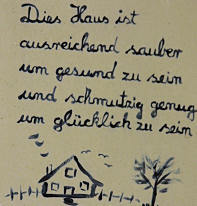 Dies Haus ist
ausreichend sauber
um gesund zu sein
und schmutzig genug
um glücklich zu sein